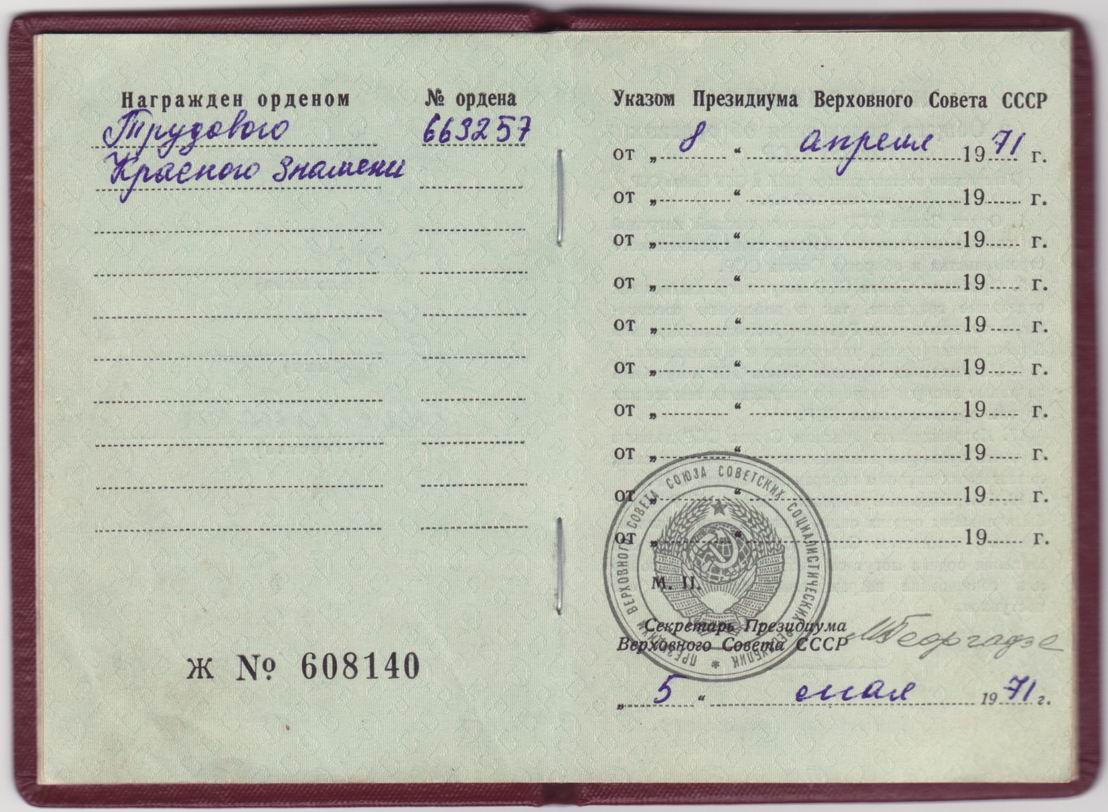 Награжден орденом № ордена
Трудового 663257
Красного Знамени
Ж № 608140
Указом Президиума Верховного Совета СССР
от „ 8 “ апреля 19 71 г.
от „ “ 19 г.
от „ “ 19 г.
от „ “ 19 г.
от „ “ 19 г.
от „ “ 19 г.
от „ “ 19 г.
от „ “ 19 г.
от „ “ 19 г.
от „ “ 19 г.
ПРЕЗИДИУМ ВЕРХОВНОГО СОВЕТА СОЮЗА СОВЕТСКИХ СОЦИАЛИСТИЧЕСКИХ РЕСПУБЛИК *
М. П.
Секретарь Президиума
Верховного Совета СССР
МГеоргадзе
„ 5 “ мая 19 71 г.